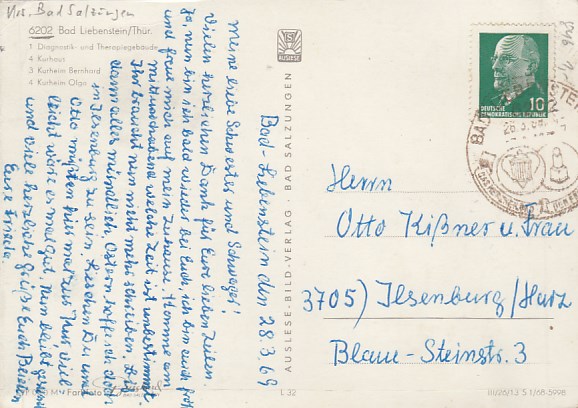 Krs. Bad Salzungen
6202 Bad Liebenstein/Thür.
1 Diagnostik- und Therapiegebäude
4 Kurhaus
3 Kurheim Bernhard
4 Kurheim Olga
AUSLESE
DEUTSCHE
DEMOKRATISCHE REPUBLIK
10
BAD LIEBENSTEIN
28.3.69
Bad-Liebenstein den 28.3.69
Meine liebe Schwester und Schwager!
Vielen herzlichen Dank für Eure lieben Zeilen.
Ja, nun bin ich bald wieder bei Euch, ich bin auch froh
und freue mich auf mein Zuhause. Komme am
mit welche Zeit ist unbestimmt.
Ihr braucht nun nicht mehr schreiben.
dann alles mündlich. Ostern hoffe ich doch
in Ilsenburg zu sein. Lieschen Du und
Otto müßten hier mal zur Kur viel-
leicht wär es mal gut. Nun bleibt gesund
und viele herzliche Grüße Euch Beiden
Eure
AUSLESE-BILD-VERLAG · BAD SALZUNGEN
Herrn
Otto Kißner u. Frau
3705) Ilsenburg/Harz
Blaue-Steinstr. 3
Farbfoto
L 32
III/26/13 S 1/68-5998